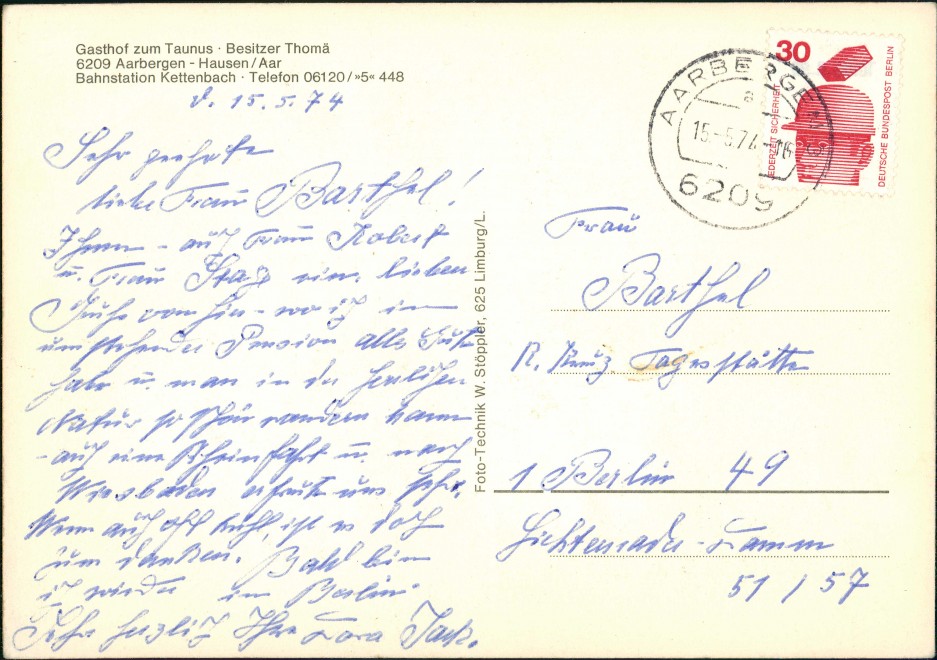 Gasthof zum Taunus · Besitzer Thomä
6209 Aarbergen - Hausen/Aar
Bahnstation Kettenbach · Telefon 06120/»5« 448
d. 15.5.74
Sehr geehrte
liebe Frau Barthel!
Ihnen - auch Frau Robert
u. Frau ein. lieben
von hier - wo ich im
umstehender Pension alles Gute
habe u. man in der herrlichen
Natur so schön wandern kann
- auch eine Rheinfahrt u. nach
Wiesbaden erfreute uns sehr.
Wenn auch oft kühl, ist es doch
zum danken. Bald bin
ich wieder in Berlin
Sehr herzlich Ihre Lora
Foto-Technik W. Stöppler, 625 Limburg/L.
30
JEDERZEIT SICHERHEIT
DEUTSCHE BUNDESPOST BERLIN
AARBERGEN
a
15-5.74-16
6209
Frau
Barthel
R. Kreuz Tagesstätte
1 Berlin 49
Lichtenrade-Damm
51/57